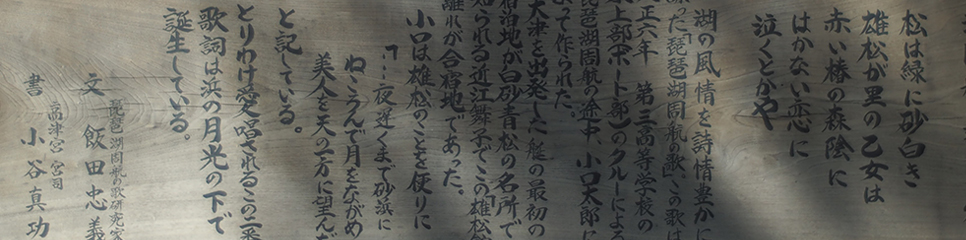 松は緑に砂白き
雄松が里の乙女は
赤い椿の森陰に
はかない恋に
泣くとがや
湖の風情を詩情豊かに
った「琵琶湖周航の歌」この歌は
正六年 第三高等学校の
水上部(ボート部)のクルーによる
琵琶湖周航の途中、小口太郎に
よって作られた。
大津を出発した艇の最初の
宿泊地が白砂青松の名所で
知られる近江舞子でこの「雄松
離れが合宿地であった。
小口は雄松のことを便りに
「…夜遅くまで砂浜に
ねころんで月をながめ
美人を天の一方に望んだ
と記している。
とりわけ愛唱されるこの二番
歌詞は浜の月光の下で
誕生している。
琵琶湖周航の歌研究家
文 飯田忠義
高津宮宮司
書 小谷真功